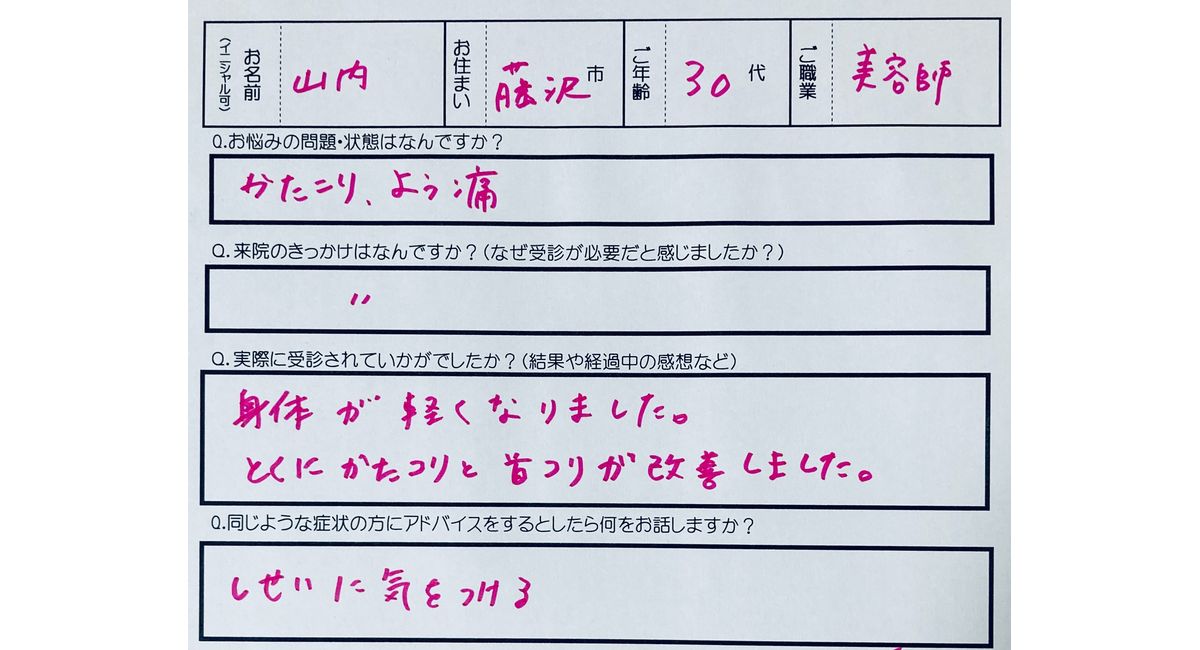 お名前(イニシャル可) 山内 お住まい 藤沢市 ご年齢 30代 ご職業 美容師
Q.お悩みの問題・状態はなんですか?
かたこり、よう痛
Q.来院のきっかけはなんですか?(なぜ受診が必要だと感じましたか?)
〃
Q.実際に受診されていかがでしたか?(結果や経過中の感想など)
身体が軽くなりました。
とくにかたコリと首コリが改善しました。
Q.同じような症状の方にアドバイスをするとしたら何をお話しますか?
しせいに気をつける